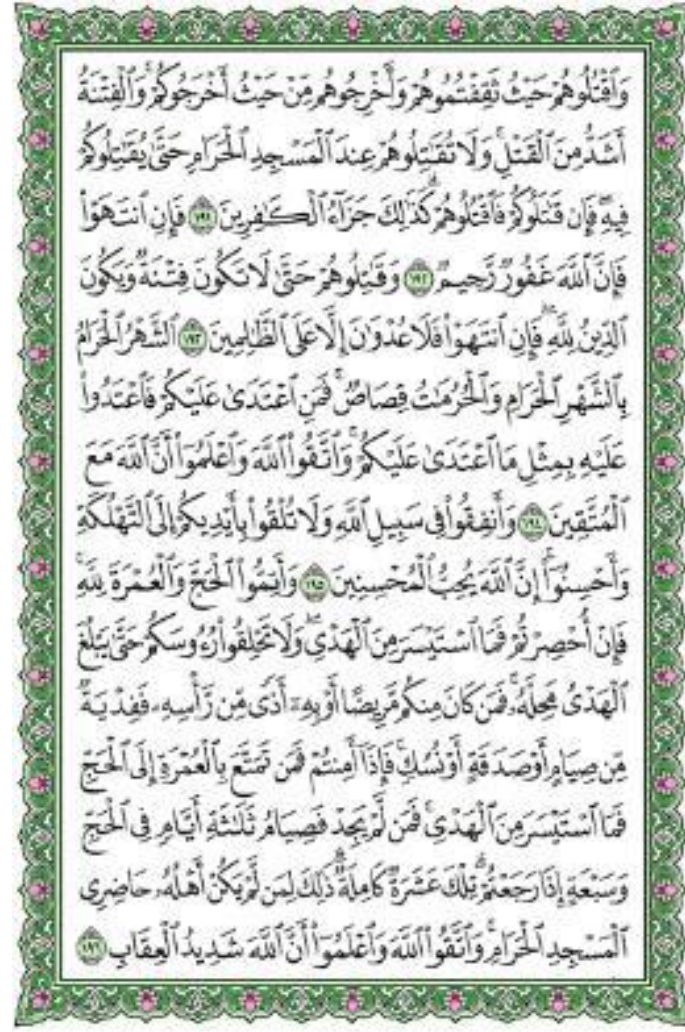 وَٱقْتُلُوهُمْ حَيْثُ ثَقِفْتُمُوهُمْ وَأَخْرِجُوهُم مِّنْ حَيْثُ أَخْرَجُوكُمْ ۚ وَٱلْفِتْنَةُ
أَشَدُّ مِنَ ٱلْقَتْلِ ۚ وَلَا تُقَـٰتِلُوهُمْ عِندَ ٱلْمَسْجِدِ ٱلْحَرَامِ حَتَّىٰ يُقَـٰتِلُوكُمْ
فِيهِ ۖ فَإِن قَـٰتَلُوكُمْ فَٱقْتُلُوهُمْ ۗ كَذَٰلِكَ جَزَآءُ ٱلْكَـٰفِرِينَ ١٩١ فَإِنِ ٱنتَهَوْا۟
فَإِنَّ ٱللَّهَ غَفُورٌ رَّحِيمٌ ١٩٢ وَقَـٰتِلُوهُمْ حَتَّىٰ لَا تَكُونَ فِتْنَةٌ وَيَكُونَ
ٱلدِّينُ لِلَّهِ ۖ فَإِنِ ٱنتَهَوْا۟ فَلَا عُدْوَٰنَ إِلَّا عَلَى ٱلظَّـٰلِمِينَ ١٩٣ ٱلشَّهْرُ ٱلْحَرَامُ
بِٱلشَّهْرِ ٱلْحَرَامِ وَٱلْحُرُمَـٰتُ قِصَاصٌ ۚ فَمَنِ ٱعْتَدَىٰ عَلَيْكُمْ فَٱعْتَدُوا۟
عَلَيْهِ بِمِثْلِ مَا ٱعْتَدَىٰ عَلَيْكُمْ ۚ وَٱتَّقُوا۟ ٱللَّهَ وَٱعْلَمُوٓا۟ أَنَّ ٱللَّهَ مَعَ
ٱلْمُتَّقِينَ ١٩٤ وَأَنفِقُوا۟ فِى سَبِيلِ ٱللَّهِ وَلَا تُلْقُوا۟ بِأَيْدِيكُمْ إِلَى ٱلتَّهْلُكَةِ ۛ
وَأَحْسِنُوٓا۟ ۛ إِنَّ ٱللَّهَ يُحِبُّ ٱلْمُحْسِنِينَ ١٩٥ وَأَتِمُّوا۟ ٱلْحَجَّ وَٱلْعُمْرَةَ لِلَّهِ ۚ
فَإِنْ أُحْصِرْتُمْ فَمَا ٱسْتَيْسَرَ مِنَ ٱلْهَدْىِ ۖ وَلَا تَحْلِقُوا۟ رُءُوسَكُمْ حَتَّىٰ يَبْلُغَ
ٱلْهَدْىُ مَحِلَّهُۥ ۚ فَمَن كَانَ مِنكُم مَّرِيضًا أَوْ بِهِۦٓ أَذًى مِّن رَّأْسِهِۦ فَفِدْيَةٌ
مِّن صِيَامٍ أَوْ صَدَقَةٍ أَوْ نُسُكٍ ۚ فَإِذَآ أَمِنتُمْ فَمَن تَمَتَّعَ بِٱلْعُمْرَةِ إِلَى ٱلْحَجِّ
فَمَا ٱسْتَيْسَرَ مِنَ ٱلْهَدْىِ ۚ فَمَن لَّمْ يَجِدْ فَصِيَامُ ثَلَـٰثَةِ أَيَّامٍ فِى ٱلْحَجِّ
وَسَبْعَةٍ إِذَا رَجَعْتُمْ ۗ تِلْكَ عَشَرَةٌ كَامِلَةٌ ۗ ذَٰلِكَ لِمَن لَّمْ يَكُنْ أَهْلُهُۥ حَاضِرِى
ٱلْمَسْجِدِ ٱلْحَرَامِ ۚ وَٱتَّقُوا۟ ٱللَّهَ وَٱعْلَمُوٓا۟ أَنَّ ٱللَّهَ شَدِيدُ ٱلْعِقَابِ ١٩٦